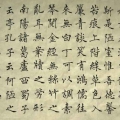 斯是陋室惟吾德馨
苔痕上階綠草色入
簾青談笑有鴻儒往
來無白丁可以調素
琴閱金經無絲竹之
亂耳無案牘之勞形
南陽諸葛廬西蜀子
雲亭孔子云何陋之